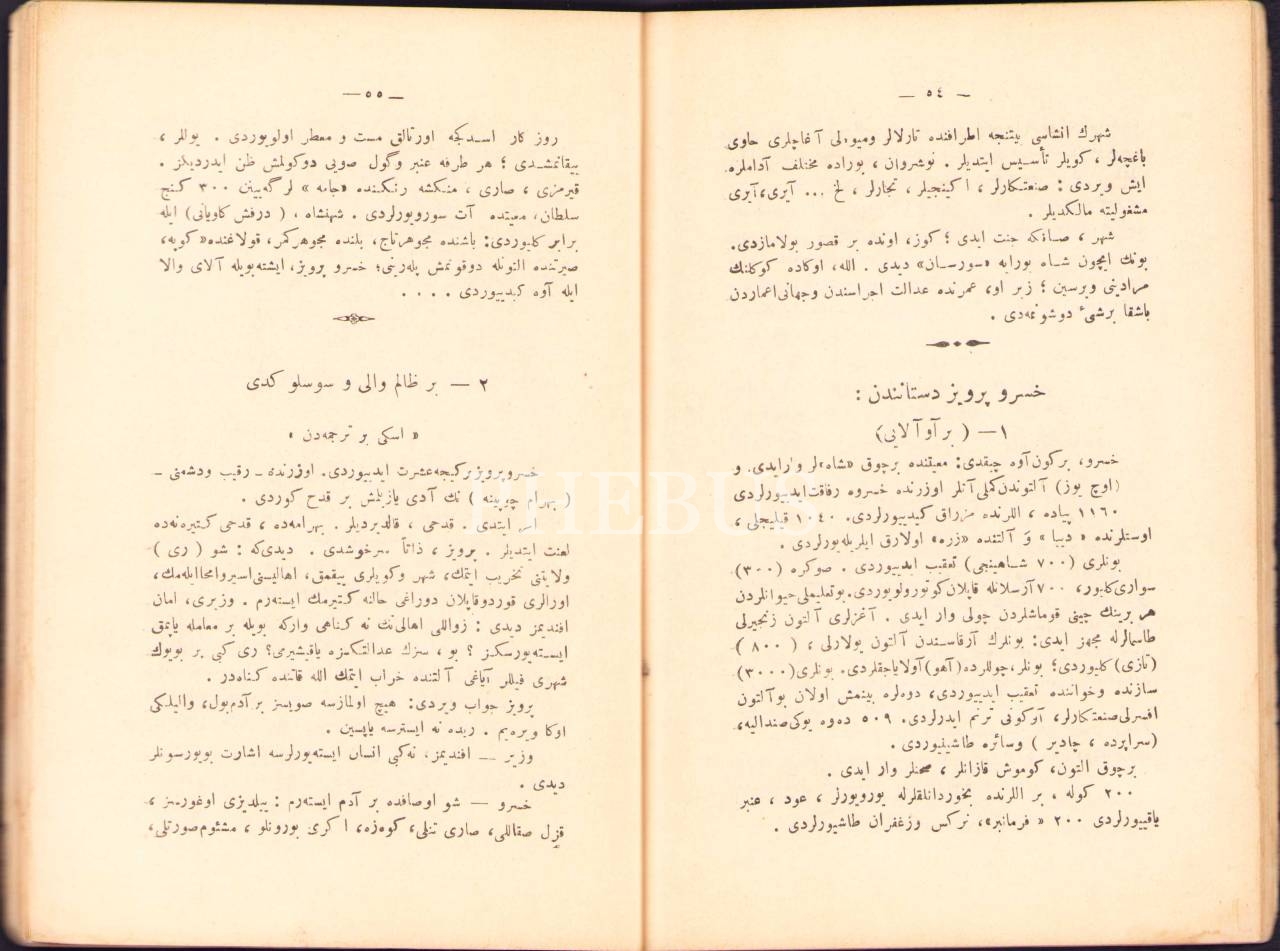 — ٥٤ —
شهرك انشاسی بیتنجه اطرافنده تارلالر ومیوه‌لی آغاچلری حاوی
باغچه‌لر ، كویلر تأسیس ایتدیلر . نوشروان ، بوراده مختلف آداملره
ایش ویردی : صنعتكارلر ، اكینجیلر ، تجارلر ، لخ ... آیری،آیری
مشغولیته مالكدیلر .
شهر ، صانكه جنت ایدی ؛ كوز، اونده بر قصور بولامازدی.
بونك ایچون شاه بورایه «سورسان» دیدی . الله، اوكاده كوكلنك
مرادینی ویرسین ؛ زیر او، عمرنده عدالت اجراسندن وجهانی اعماردن
باشقا برشیٔ دوشونمه‌دی .
خسرو پرویز دستانندن :
١— ( بر آو آلایی)
خسرو، بركون آوه چیقدی: معیتنده برچوق «شاه»لر واراید‌ی. و
(اوچ یوز) آلتوندن كملی آتلر اوزرنده خسروه رفاقت ایدییورلردی
١١٦٠ پیاده ، اللرنده مزراق كیدییورلردی. ١٠٤٠ قیلیجلی ،
اوستلرنده « دیبا » و آلتنده «زره» اولارق ایلریله‌یورلردی .
بونلری (٧٠٠ شاهینجی) تعقیب ایدییوردی . صوكره (٣٠٠)
سواری كلیور، ٧٠٠ آرسلانله قاپلان كوتورولویوردی. بوتعلیملی حیوانلردن
هر برینك چینی قوماشلردن چولی وار ایدی . آغزلری آلتون زنجیرلی
طاسمالرله مجهز ایدی: بونلرك آرقاسندن آلتون یولارلی ، ( ٨٠٠ )
(تازی) كلیوردی؛ بونلر، چوللرده (آهو) آولایاجقلردی. بونلری (٣٠٠٠)
سازنده وخواننده تعقیب ایدییوردی، دوه‌لره بینمش اولان بو آلتون
افسرلی صنعتكارلر، آوكونی ترنم ایدرلردی. ٥٠٩ ده‌وه یوكی صندالیه،
(سراپرده ، چادیر ) وسائره طاشینیوردی .
برچوق التون، كوموش قازانلر ، صحنلر وار ایدی .
٢٠٠ كوله ، بر اللرنده بخوردانلقلرله یورویورلر ، عود ، عنبر
یاقییورلردی ٢٠٠ « فرمانبر»، نركس وزغفران طاشییورلردی .
— ٥٥ —
روز كار اسدكجه اورتالق مست و معطر اولویوردی . یوللر ،
ییقانمشدی ؛ هر طرفه عنبر وگول صویی دوكولمش ظن ایدردیكز .
قیرمزی ، صاری ، منكشه رنكنده «جامه » لر گه‌یینن ٣٠٠ كنج
سلطان، معیتده آت سورویورلردی . شهنشاه ، ( درفش كاویانی) ایله
برابر كلیوردی: باشنده مجوهرتاج، بلنده مجوهركمر، قولاغنده« كوپه،
صیرتنده التونله دوقونمش پله‌رینی؛ خسرو پرویز، ایشته بویله آلای والا
ایله آوه كیدییوردی . . . .
٢ — بر ظالم والی و سوسلو كدی
« اسكی بر ترجمه‌دن »
خسرو پرویز بركیجه عشرت ایدییوردی. اوزرنده ـ رقیب ودشمنی ـ
( بهرام چوپینه ) نك آدی یازیلمش بر قدح كوردی .
امر ایتدی . قدحی ، قالدیردیلر . بهرامه‌ده ، قدحی كتیره‌نه‌ده
لعنت ایتدیلر . پرویز ، ذاتاً سرخوشدی . دیدی‌كه : شو ( ری )
ولایتنی تخریب ایتمك، شهر وكویلری ییقمق، اهالیسنی اسیر وامحا ایله‌مك،
اورالری قوردوقاپلان دوراغی حالنه كتیرمك ایسته‌رم . وزیری، امان
افندیمز دیدی : زواللی اهالی‌نك نه كناهی واركه بویله بر معامله یاپمق
ایسته‌یورسكز ؟ بو ، سزك عدالتكزه یاقیشیرمی؟ ری كبی بر بویوك
شهری فیللر آیاغی آلتنده خراب ایتمك الله قاتنده كناه‌در .
پرویز جواب ویردی: هیچ اولمازسه صویسز بر آدم بول، والیلكی
اوكا ویره‌یم . ریده نه ایسترسه یاپسین .
وزیر — افندیمز، نه كبی انسان ایسته‌یورلرسه اشارت بویورسونلر
دیدی .
خسرو — شو اوصافده بر آدم ایسته‌رم : ییلدیزی اوغورسز ،
قزل صقاللی، صاری تنلی، كوه‌زه، اكری بورونلو ، مشئوم صورتلی،
PHEBUS